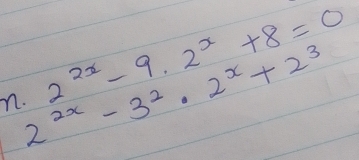 n. 2^{2x} - 9 . 2^x + 8 = 0
2^{2x} - 3^2 • 2^x + 2^3